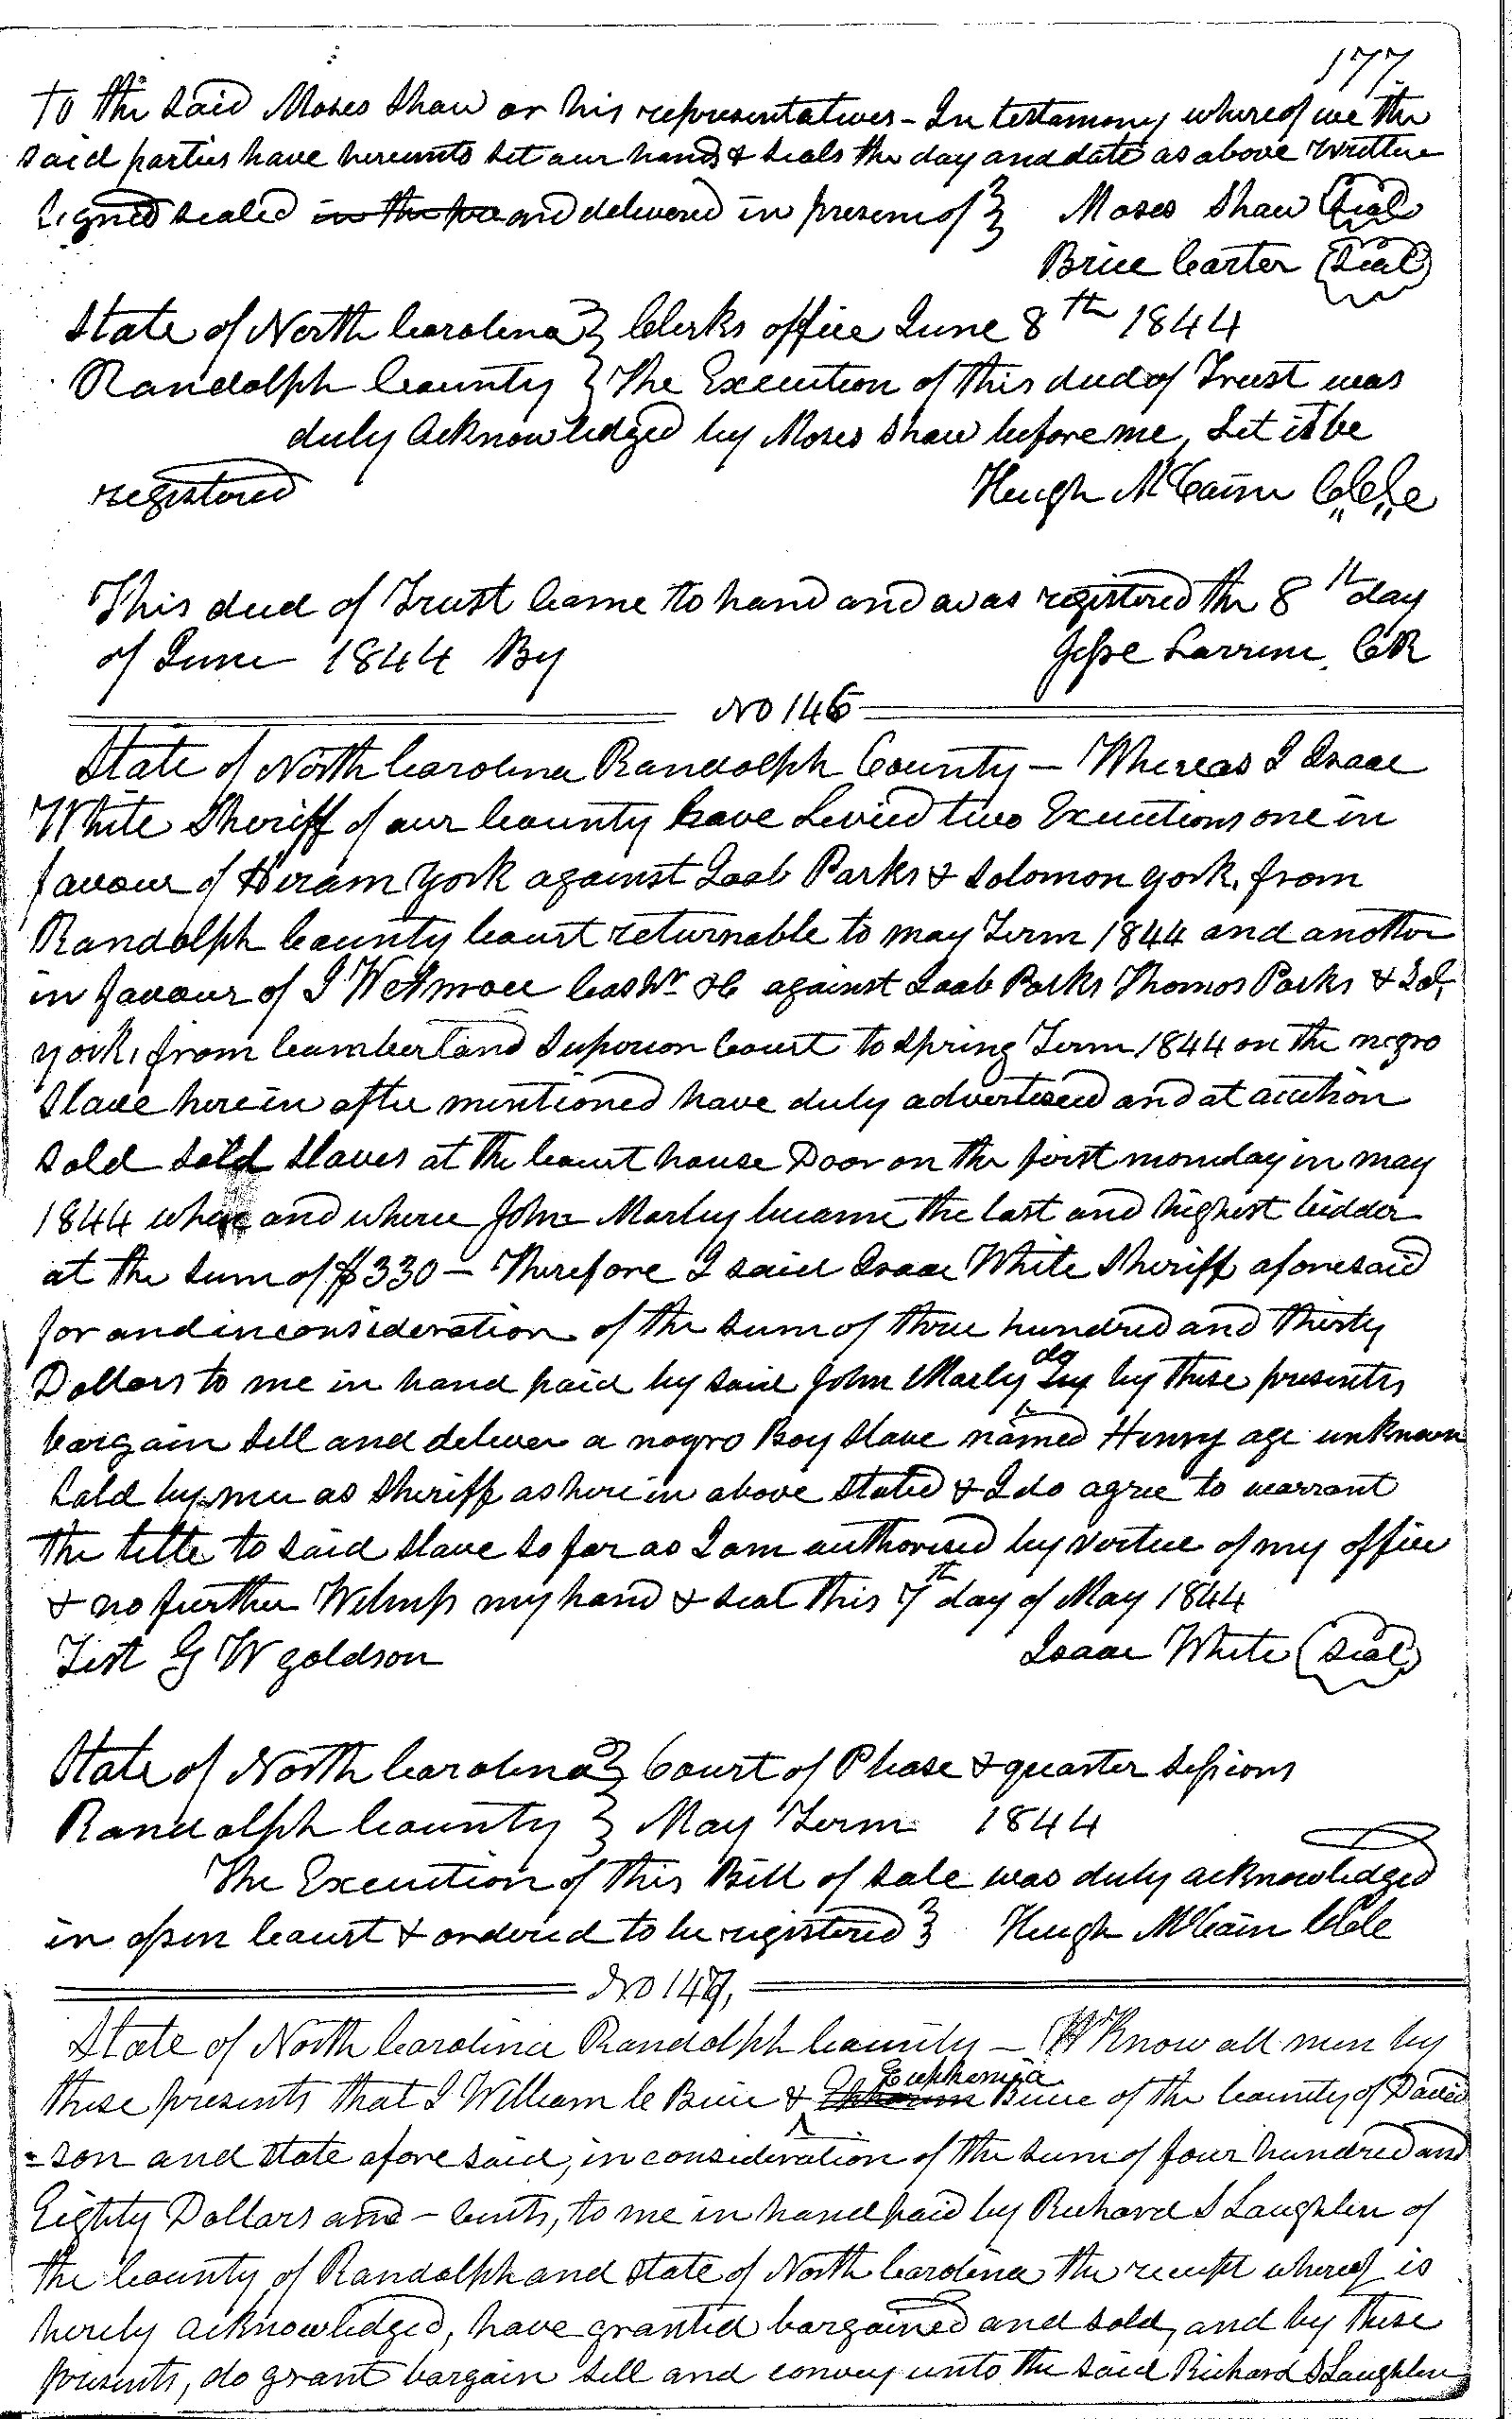 177
To the said Moses Shaw or his representatives - In testamony whereof we the
said parties have hereunto set our hands & seals the day and date as above written
Signed sealed in the pre and delivered in presence of } Moses Shaw (Seal)
Brice Carter (Seal)
State of North Carolina } Clerks office June 8th 1844
Randolph County } The Execution of this deed of Trust was
duly Acknowledged by Moses Shaw before me, Let it be
registered Hugh McCain C.C.C
This deed of Trust came to hand and was registered the 8th day
of June 1844 By Jesse Larrene, CR
No 146
State of North Carolina Randolph County - Whereas I Isaac
White Sheriff of our County have Levied two Executions one in
favour of Hiram York against Joab Parks & Solomon York, from
Randolph County Court returnable to may Term 1844 and another
in favour of I Wetmore Cashr &C against Joab Parks Thomas Parks & Sol,
York, from Cumberland Superior Court to Spring Term 1844 on the negro
Slave herein after mentioned have duly advertised and at auction
sold said slaves at the Court house Door on the first monday in may
1844 when and where John Marley became the last and highest bidder
at the sum of $330 - Therefore I said Isaac White Sheriff aforesaid
for and inconsideration of the sum of three hundred and thirty
Dollars to me in hand paid by said John Marly do by these presents
bargain sell and deliver a negro Boy slave named Henry age unknown
Sold by me as Sheriff as here in above stated & I do agree to warrant
the title to said slave so far as I am authorised by virtue of my office
& no further Witness my hand & seal this 7th day of May 1844
Test G W goldson Isaac White (Seal)
State of North Carolina } Court of Please & quarter Sessions
Randolph County } May Term 1844
The Execution of this Bill of sale was duly acknowledged
in open Court & ordered to be registered } Hugh McCain Clk
No 147,
State of North Carolina Randolph County - Know all men by
these presents that I William C Buie & Euphemia Buie of the County of David
=son and state afore said, in consideration of the sum of four hundred and
Eighty Dollars and - cents, to me in hand paid by Richard S Laughlin of
the County of Randolph and state of North Carolina the receipt whereof is
hereby acknowledged, have granted bargained and sold, and by these
presents, do grant bargain sell and convey unto the said Richard S Laughlin